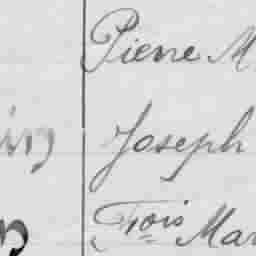 Pierre M
Joseph
Fois Mar